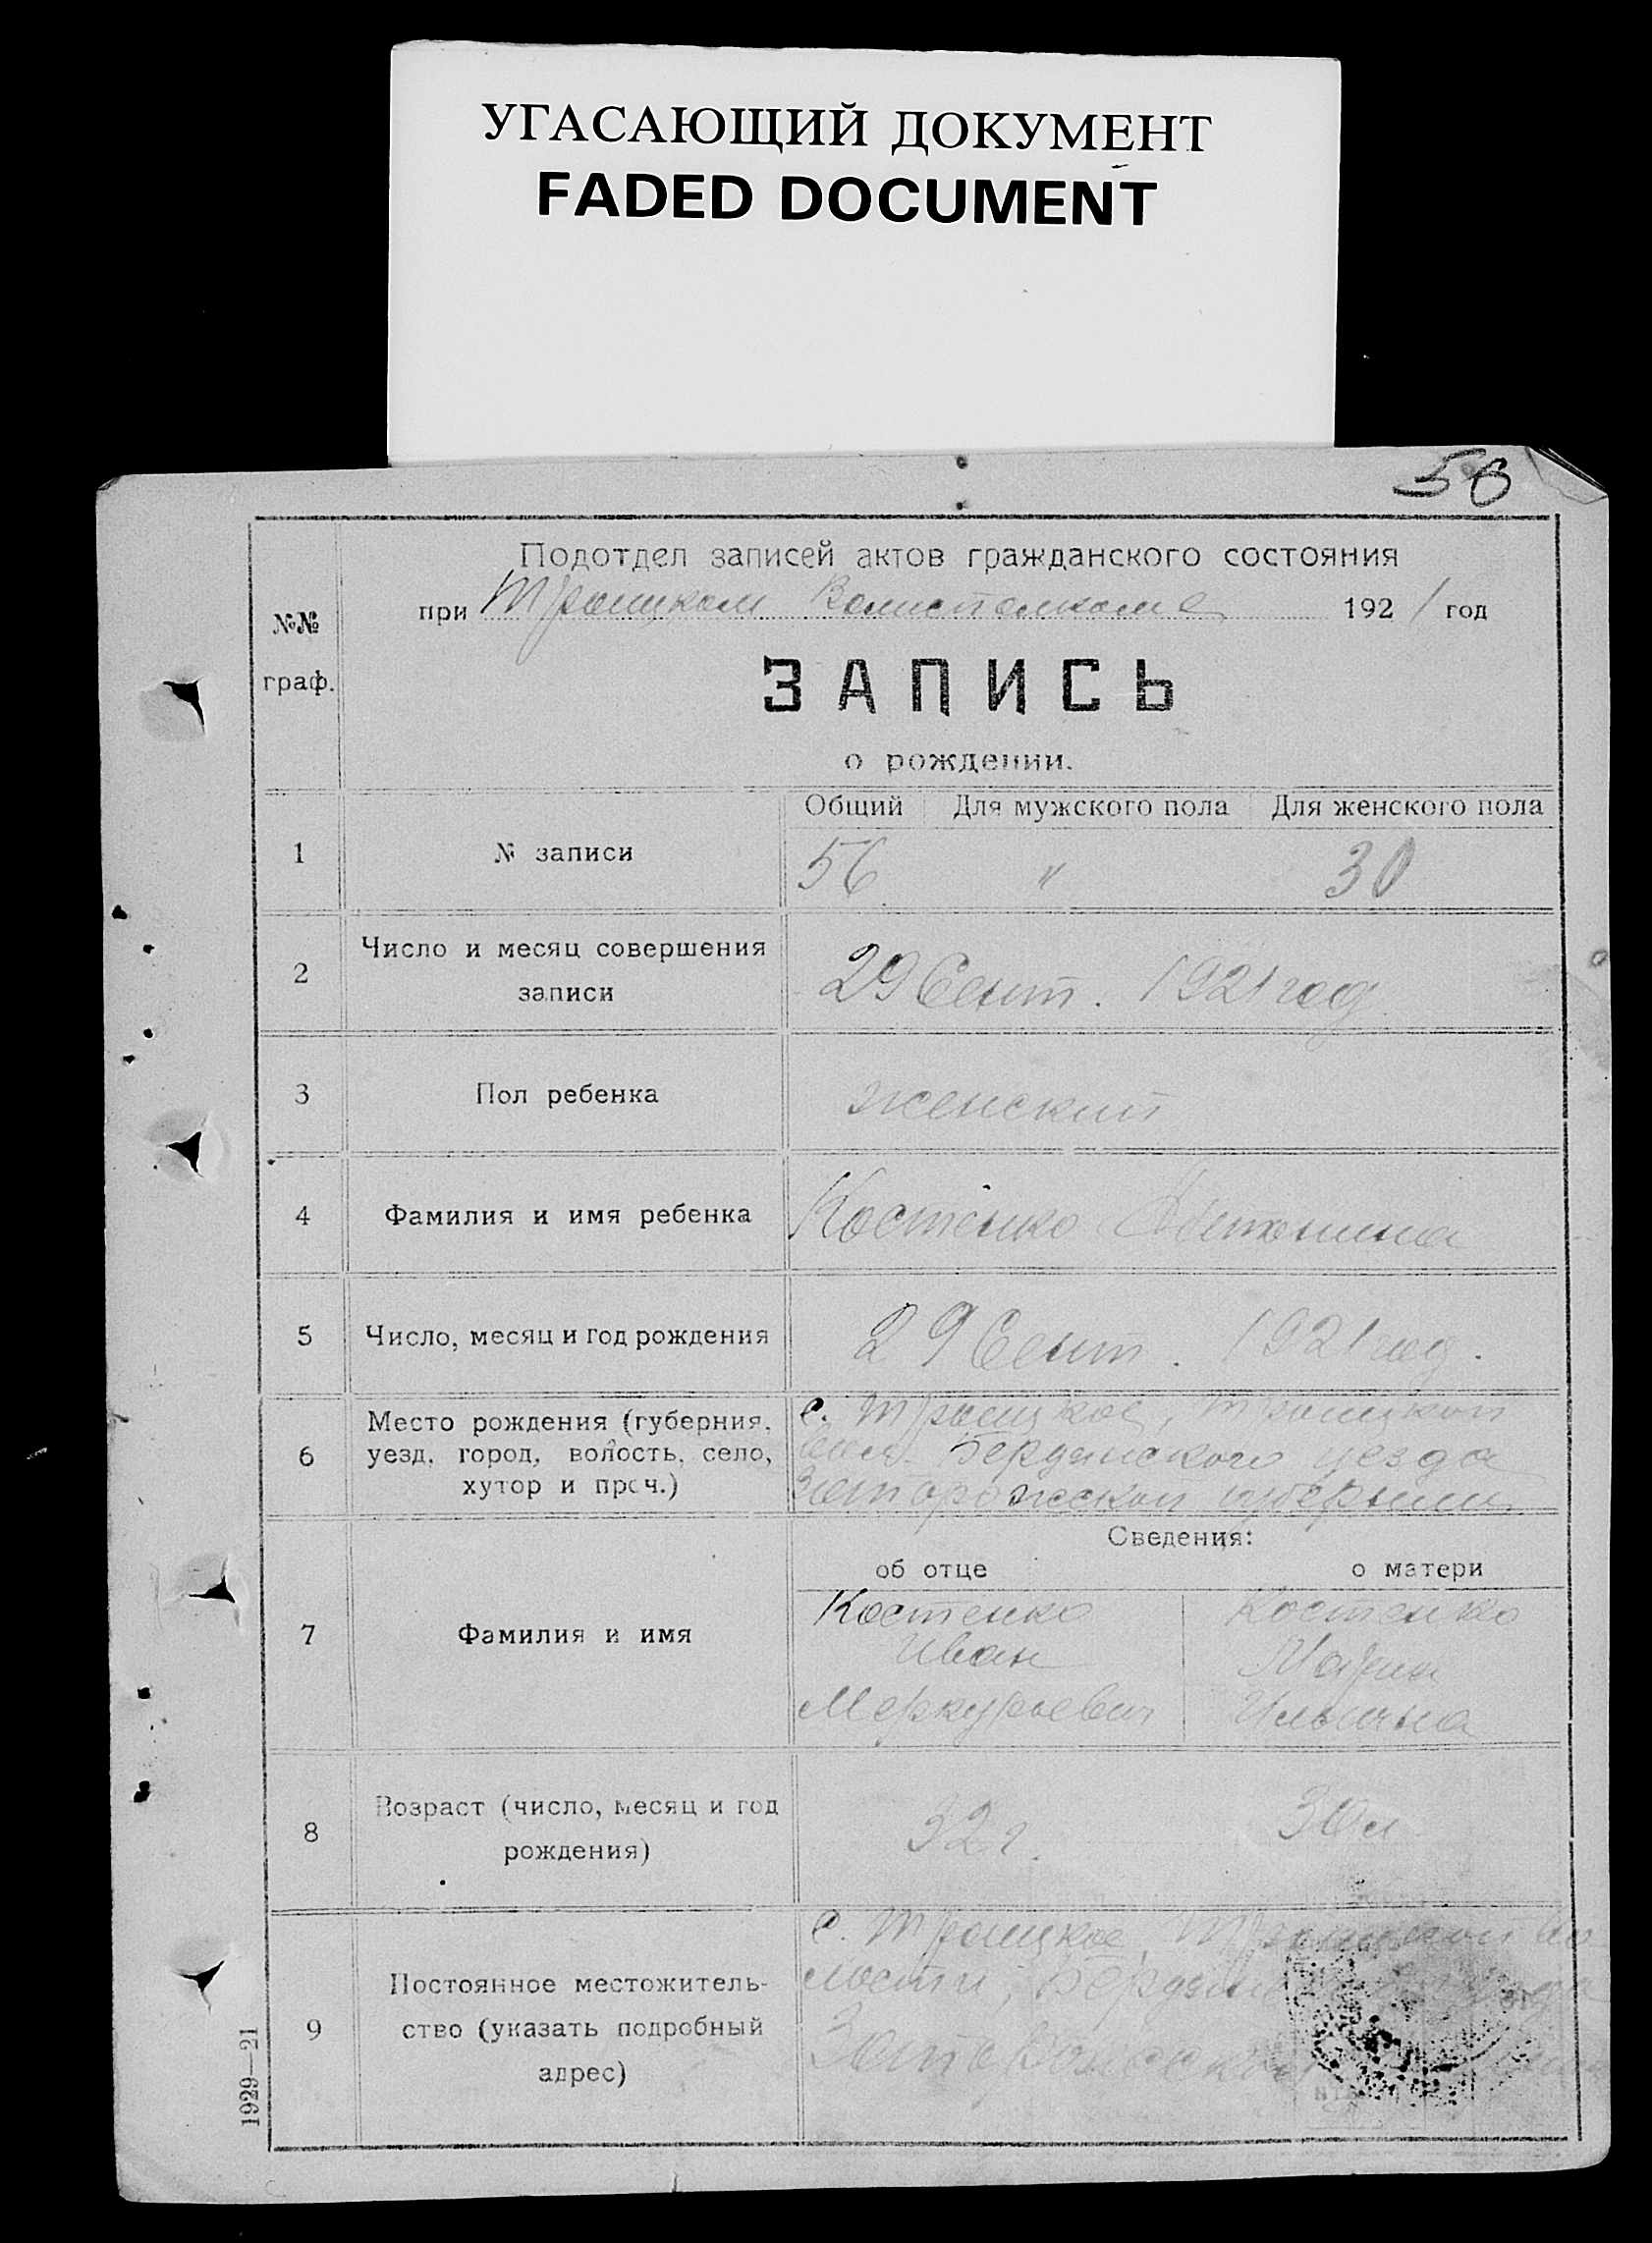 УГАСАЮЩИЙ ДОКУМЕНТ
FADED DOCUMENT
56
Подотдел записей актов гражданского состояния
при Троицком Волисполкоме 1921 год
№№
граф.
ЗАПИСЬ
о рождении.
Общий Для мужского пола Для женского пола
1 № записи 56 " 30
2 Число и месяц совершения
записи
29 Сент. 1921 год
3 Пол ребенка женский
4 Фамилия и имя ребенка Костенко Антонина
5 Число, месяц и год рождения 29 Сент. 1921 год.
6 Место рождения (губерния,
уезд, город, волость, село,
хутор и проч.)
с. Троицкое, Троицкой
вол. Бердянского уезда
Запорожской губернии
Сведения:
об отце о матери
7 Фамилия и имя
Костенко Костенко
Иван Мария
Меркурьевич Ильична
8 Возраст (число, месяц и год
рождения)
32 г. 30 л.
9 Постоянное местожитель-
ство (указать подробный
адрес)
с. Троицкое, Троицкой во-
лости, Бердянского уезда
Запорожской
1929—21